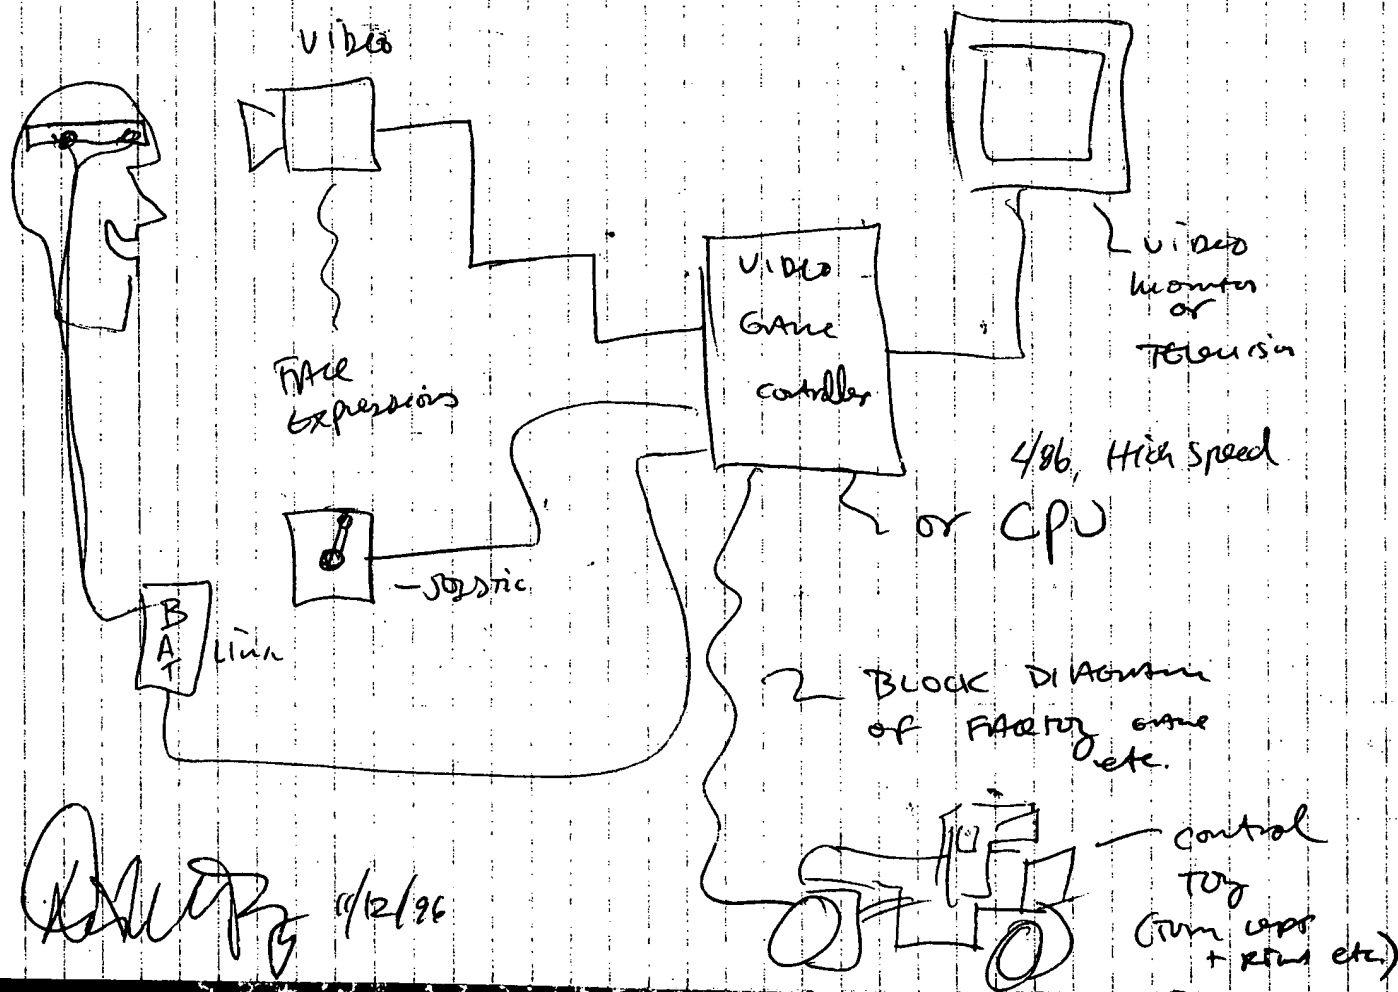 VIDEO
FACE
Expressions
VIDEO
GAME
Controller
VIDEO
monitor
or
TELEVISION
4/86, High Speed
or CPU
BAT
Link
BLOCK DIAGRAM
of game
etc.
control
TOY
(Turn
+ etc.)
11/12/96